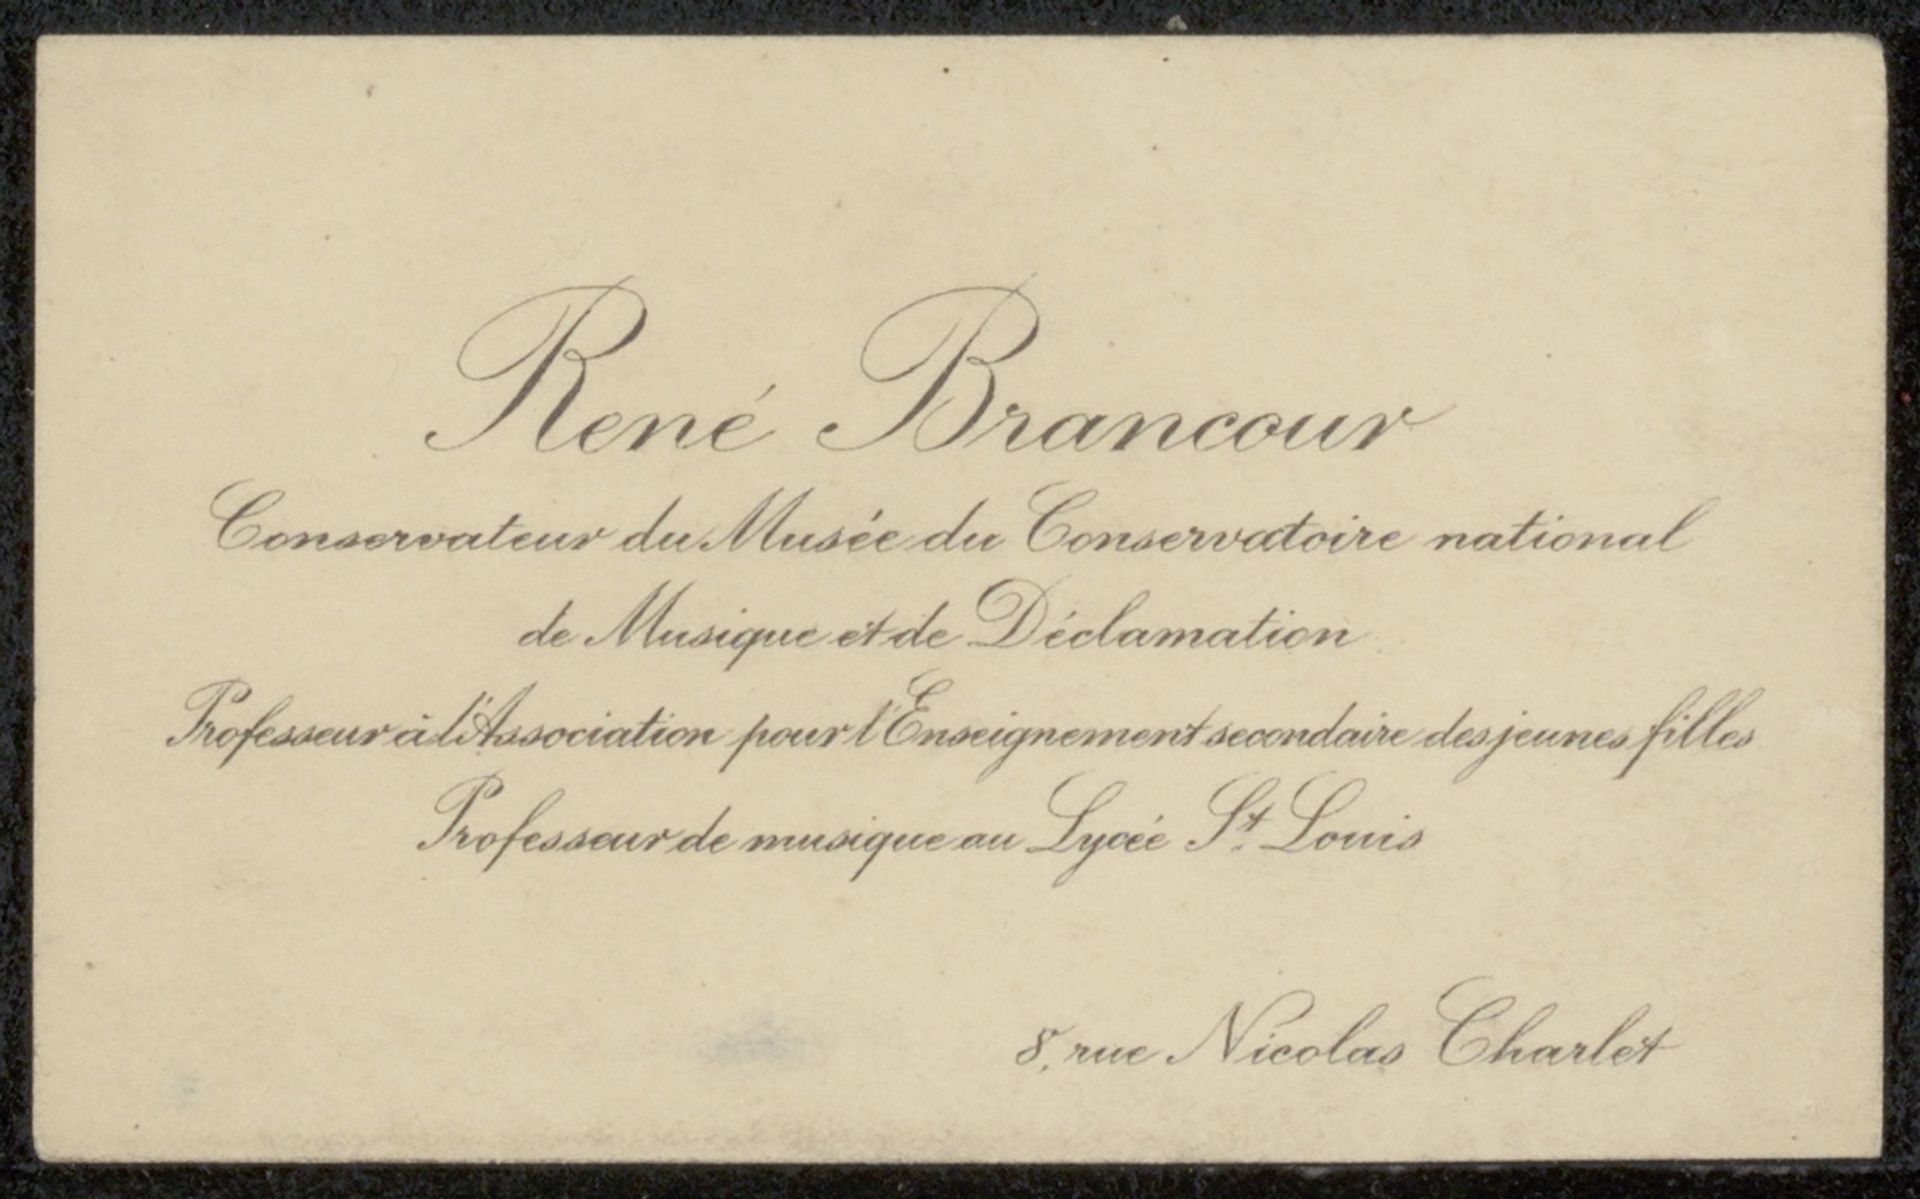 René Brancour
Conservateur du Musée du Conservatoire national
de Musique et de Déclamation
Professeur à l'Association pour l'Enseignement secondaire des jeunes filles
Professeur de musique au Lycée St. Louis
8, rue Nicolas Charlet